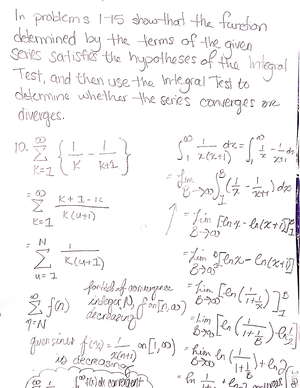 In problems 1-15 show that the function
determined by the terms of the given
series satisfies the hypotheses of the Integral
Test, and then use the Integral Test to
determine whether the series converges or
diverges.
10. ∞ Σ K=1 { 1/K - 1/(K+1) }
= ∞ Σ K=1 (K+1-K)/(K(K+1))
= N Σ K=1 1/(K(K+1))
∞ Σ n=N f(n)
integer N, f on [N, ∞)
decreasing
given series f(x) = 1/(x(x+1)) on [1, ∞)
is decreasing
∫ 1 ∞ 1/(x(x+1)) dx = ∫ 1 ∞ 1/x - 1/(x+1) dx
= lim B→∞ ∫ 1 B (1/x - 1/(x+1)) dx
= lim B→∞ [ln x - ln(x+1)]
= lim B→∞ [ln x - ln(x+1)]
= lim B→∞ [ln (1/(1+1/x))] 1 B
= lim B→∞ [ln (1/(1+1/B)) - ln 1/2]
= lim B→∞ ln (1/(1+1/B)) + ln 2